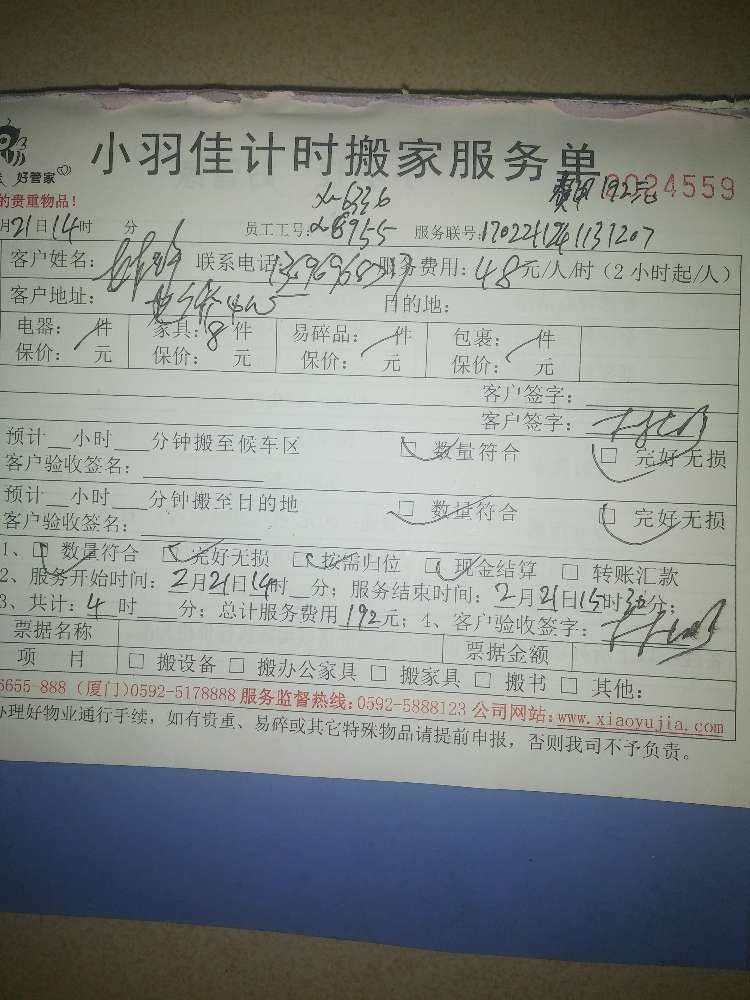 小羽佳计时搬家服务单
好管家
费用192元
2024559
的贵重物品!
月21日14时 分 员工工号: 服务联号:
客户姓名: 联系电话 服务费用:48元/人/时(2小时起/人)
客户地址: 目的地:
电器: 件 家具:8件 易碎品: 件 包裹: 件
保价: 元 保价: 元 保价: 元 保价: 元
客户签字:
客户签字:
预计__小时__分钟搬至候车区 □ 数量符合 □ 完好无损
客户验收签名:
预计__小时__分钟搬至目的地 □ 数量符合 □ 完好无损
客户验收签名:
1、□ 数量符合 □ 完好无损 □ 按需归位 □ 现金结算 □ 转账汇款
2、服务开始时间:2月21日14时__分;服务结束时间:2月21日15时30分;
3、共计:4时 分;总计服务费用192元;4、客户验收签字:
票据名称 票据金额
项 目 □ 搬设备 □ 搬办公家具 □ 搬家具 □ 搬书 □ 其他:
6655-888 (厦门)0592-5178888 服务监督热线:0592-5888123 公司网站:www.xiaoyujia.com
办理好物业通行手续,如有贵重、易碎或其它特殊物品请提前申报,否则我司不予负责。